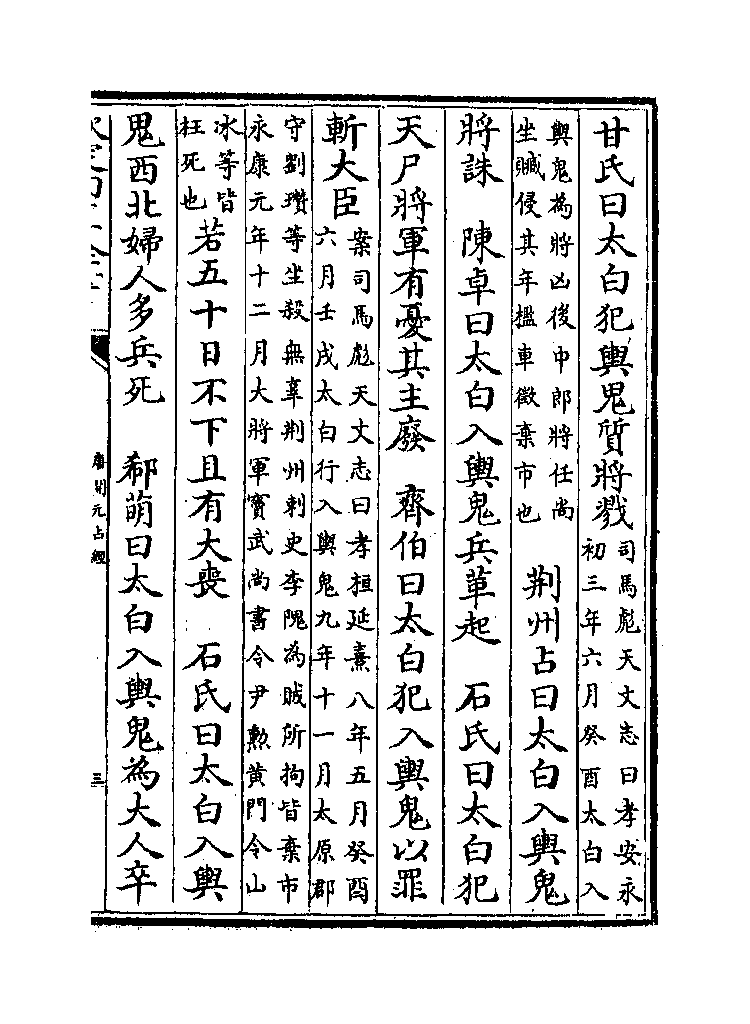 甘氏曰太白犯輿鬼質將戮司馬彪天文志曰孝安永
初三年六月癸酉太白入
輿鬼為將凶後中郎將任尚
坐贓侵其年檻車徵棄市也荆州占曰太白入輿鬼
將誅　陳卓曰太白入輿鬼兵革起　石氏曰太白犯
天尸將軍有憂其主廢　齊伯曰太白犯入輿鬼以罪
斬大臣案司馬彪天文志曰孝桓延熹八年五月癸酉
六月壬戌太白行入輿鬼九年十一月太原郡
守劉瓚等坐殺無辜荆州刺史李隗為賊所拘皆棄市
永康元年十二月大將軍竇武尚書令尹勲黄門令山
冰等皆
枉死也若五十日不下且有大喪　石氏曰太白入輿
鬼西北婦人多兵死　郗萌曰太白入輿鬼為大人卒
唐開元占經
三